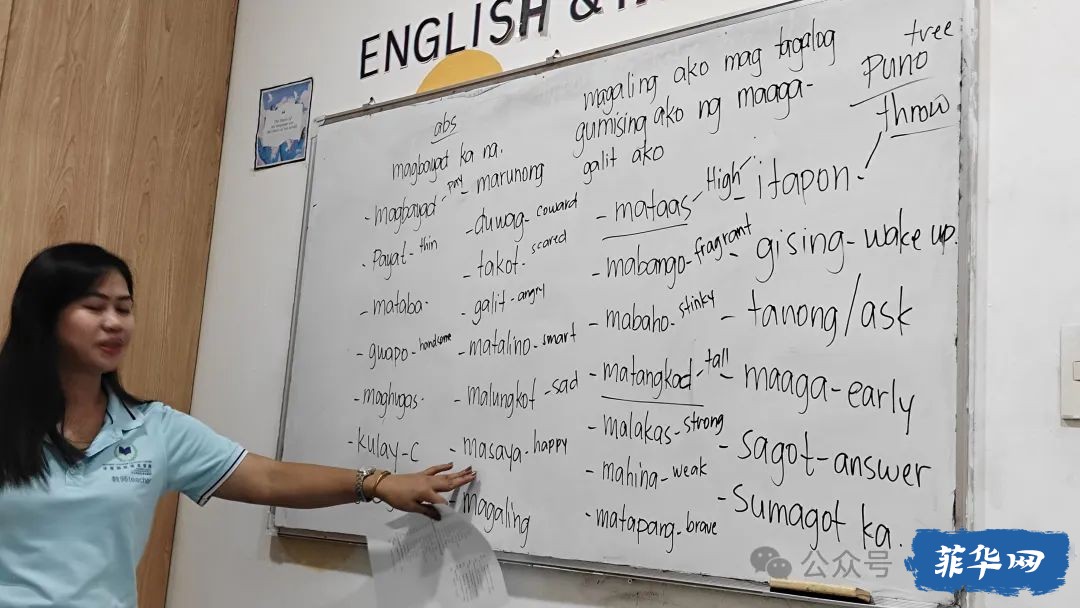 ENGLISH &
abs
magbayad ka na.
- magbayad - pay
- payat - thin
- mataba -
- guapo - handsome
- maghugas -
- kulay - c
- marunong
- duwag - coward
- takot - scared
- galit - angry
- matalino - smart
- malungkot - sad
- masaya - happy
- magaling
magaling ako mag tagalog
gumising ako ng maaga-
galit ako
- mataas - High
- mabango - fragrant
- mabaho - stinky
- matangkad - tall
- malakas - strong
- mahina - weak
- matapang - brave
tree
puno
throw
- itapon -
- gising - wake up.
- tanong/ask
- maaga - early
- sagot - answer
- sumagot ka.
教师teacher
公众号
菲华网